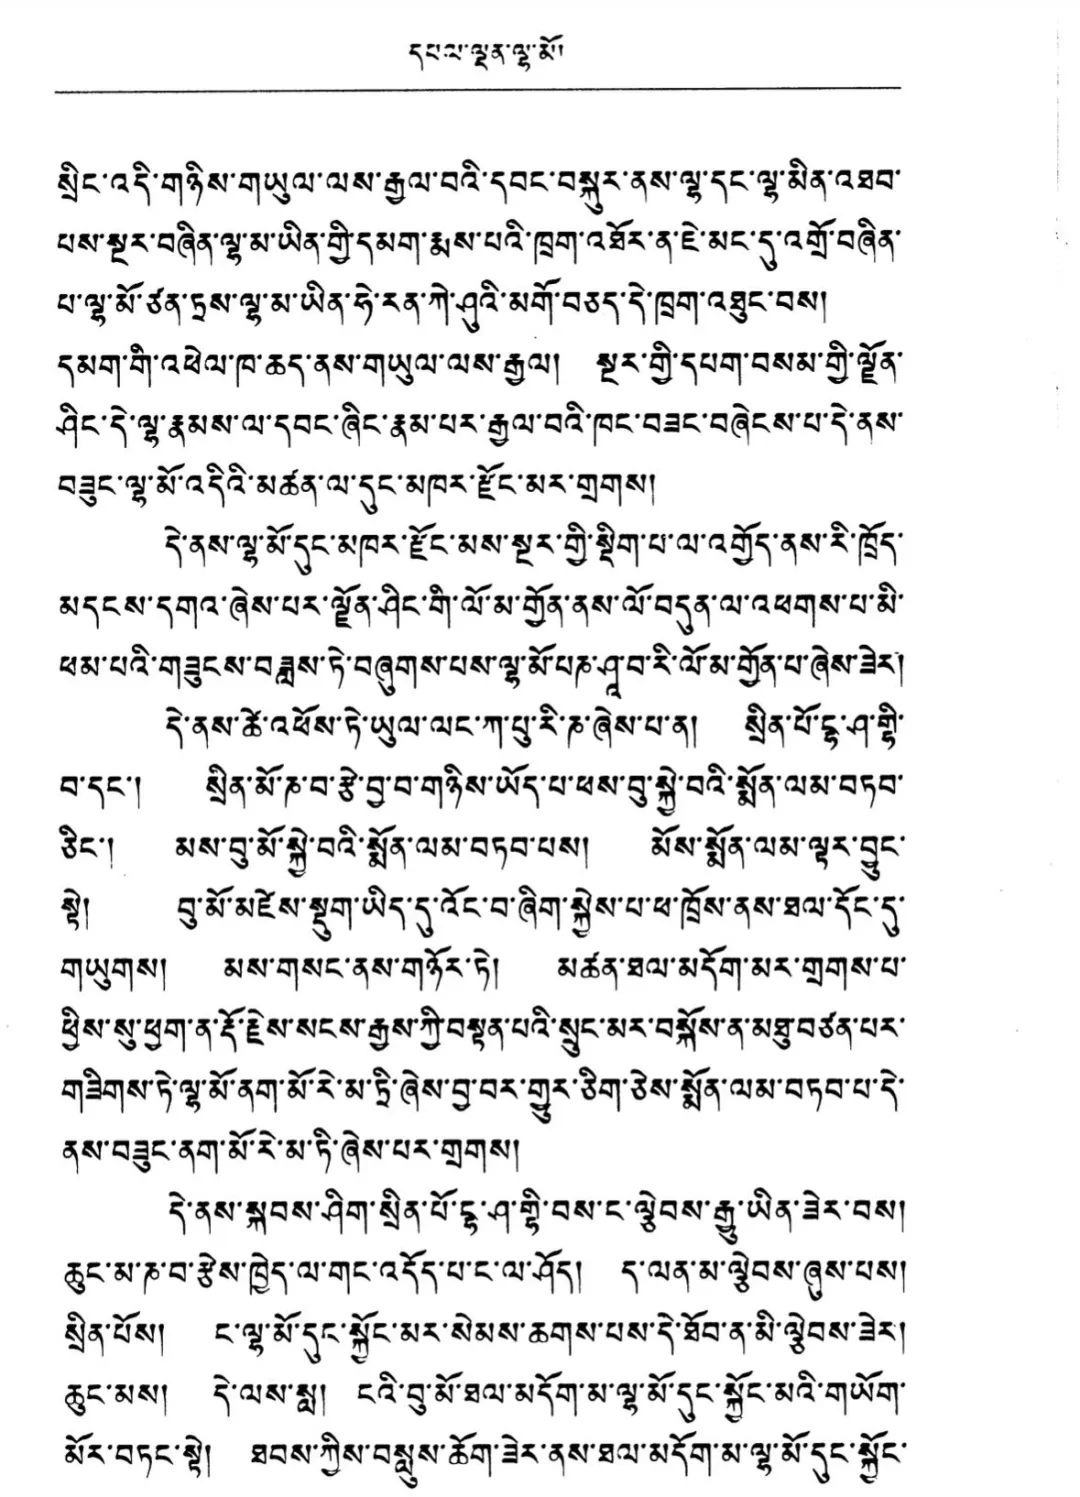 དཔལ་ལྡན་ལྷ་མོ།
སྲིང་འདི་གཉིས་གཡུལ་ལས་རྒྱལ་བའི་དབང་བསྐུར་ནས་ལྷ་དང་ལྷ་མིན་འཐབ་
པས་སྔར་བཞིན་ལྷ་མ་ཡིན་གྱི་དམག་རྨས་པའི་ཁྲག་འཐོར་ན་ཇེ་མང་དུ་འགྲོ་བཞིན་
པ་ལྷ་མོ་ཙན་ཏྲས་ལྷ་མ་ཡིན་ཧེ་རན་ཀེ་ཤུའི་མགོ་བཅད་དེ་ཁྲག་འཐུང་བས།
དམག་གི་འཕེལ་ཁ་ཆད་ནས་གཡུལ་ལས་རྒྱལ། སྔར་གྱི་དཔག་བསམ་གྱི་ལྗོན་
ཤིང་དེ་ལྷ་རྣམས་ལ་དབང་ཞིང་རྣམ་པར་རྒྱལ་བའི་ཁང་བཟང་བཞེངས་པ་དེ་ནས་
བཟུང་ལྷ་མོ་འདིའི་མཚན་ལ་དུང་མཁར་རྫོང་མར་གྲགས།
དེ་ནས་ལྷ་མོ་དུང་མཁར་རྫོང་མས་སྔར་གྱི་སྡིག་པ་ལ་འགྱོད་ནས་རི་ཁྲོད་
མདངས་དགའ་ཞེས་པར་ལྗོན་ཤིང་གི་ལོ་མ་གྱོན་ནས་ལོ་བདུན་ལ་འཕགས་པ་མི་
ཕམ་པའི་གཟུངས་བཟླས་ཏེ་བཞུགས་པས་ལྷ་མོ་པརྞ་ཤཱ་བ་རི་ལོ་མ་གྱོན་པ་ཞེས་ཟེར།
དེ་ནས་ཚེ་འཕོས་ཏེ་ཡུལ་ལང་ཀ་པུ་རི་ཎ་ཞེས་པ་ན། སྲིན་པོ་དྷ་ཤ་གྷི་
བ་དང་། སྲིན་མོ་ཎ་བ་རྩེ་བྱ་བ་གཉིས་ཡོད་པ་ཕས་བུ་སྐྱེ་བའི་སྨོན་ལམ་བཏབ་
ཅིང་། མས་བུ་མོ་སྐྱེ་བའི་སྨོན་ལམ་བཏབ་པས། མོས་སྨོན་ལམ་ལྟར་བྱུང་
སྟེ། བུ་མོ་མཛེས་སྡུག་ཡིད་དུ་འོང་བ་ཞིག་སྐྱེས་པ་ཕ་ཁྲོས་ནས་ཐལ་དོང་དུ་
གཡུགས། མས་གསང་ནས་གཉོར་ཏེ། མཚན་ཐལ་མདོག་མར་གྲགས་པ་
ཕྱིས་སུ་ཕྱག་ན་རྡོ་རྗེས་སངས་རྒྱས་ཀྱི་བསྟན་པའི་སྲུང་མར་བསྐོས་ན་མཐུ་བཙན་པར་
གཟིགས་ཏེ་ལྷ་མོ་ནག་མོ་རེ་མ་ཏི་ཞེས་བྱ་བར་གྱུར་ཅིག་ཅེས་སྨོན་ལམ་བཏབ་པ་དེ་
ནས་བཟུང་ནག་མོ་རེ་མ་ཏི་ཞེས་པར་གྲགས།
དེ་ནས་སྐབས་ཤིག་སྲིན་པོ་དྷ་ཤ་གྷི་བས་ང་ལྕེབས་རྒྱུ་ཡིན་ཟེར་བས།
ཆུང་མ་ཎ་བ་རྩེས་ཁྱེད་ལ་གང་འདོད་པ་ང་ལ་ཤོད། ད་ལན་མ་ལྕེབས་ཞུས་པས།
སྲིན་པོས། ང་ལྷ་མོ་དུང་སྐྱོང་མར་སེམས་ཆགས་པས་དེ་ཐོབ་ན་མི་ལྕེབས་ཟེར།
ཆུང་མས། དེ་ལས་སླ། ངའི་བུ་མོ་ཐལ་མདོག་མ་ལྷ་མོ་དུང་སྐྱོང་མའི་གཡོག་
མོར་བཏང་སྟེ། ཐབས་ཀྱིས་བསླུས་ཆོག་ཟེར་ནས་ཐལ་མདོག་མ་ལྷ་མོ་དུང་སྐྱོང་